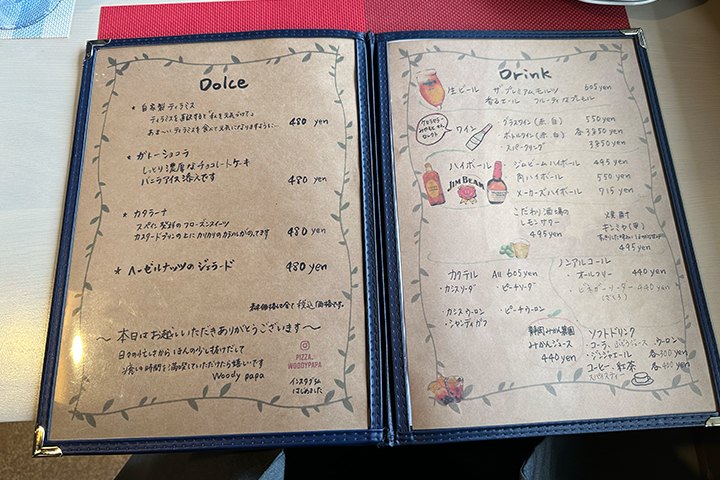 Dolce
★ 自家製 ティラミス
480 yen
★ ガトーショコラ
しっとり濃厚なチョコレートケーキ
バニラアイス添えです
480 yen
★ カタラーナ
スペイン発祥のフローズンスイーツ
カスタードプリンの上にカリカリのカラメルがのってます 480 yen
★ ヘーゼルナッツのジェラード 480 yen
税込価格です。
〜本日はお越しいただきありがとうございます〜
日々の忙しさからほんの少し抜けだして
時間を満喫していただけたら嬉しいです
Woody papa
PIZZA.
WOODYPAPA
インスタグラム
はじめました
Drink
生ビール ザ・プレミアムモルツ 605yen
香るエール フルーティなプレモル
ワイン
グラスワイン (赤 白) 550 yen
ボトルワイン (赤 白) 各3850 yen
スパークリング 3850 yen
ハイボール
JIM BEAM
ジムビームハイボール 495 yen
角ハイボール 550 yen
メーカーズハイボール 715 yen
こだわり酒場の
レモンサワー
495yen
焼酎
キンミヤ(甲)
495yen
カクテル All 605yen
・カシスソーダ ・ピーチソーダ
・カシスウーロン ・ピーチウーロン
・シャンディガフ
ノンアルコール
・オールフリー 440 yen
ビネガーソーダー 440 yen
(ざくろ)
静岡みかん農園
みかんジュース
440 yen
ソフトドリンク
・コーラ、ぶどうジュース、ウーロン
・ジンジャエール 各300 yen
コーヒー、紅茶 各400 yen
スパイスティー